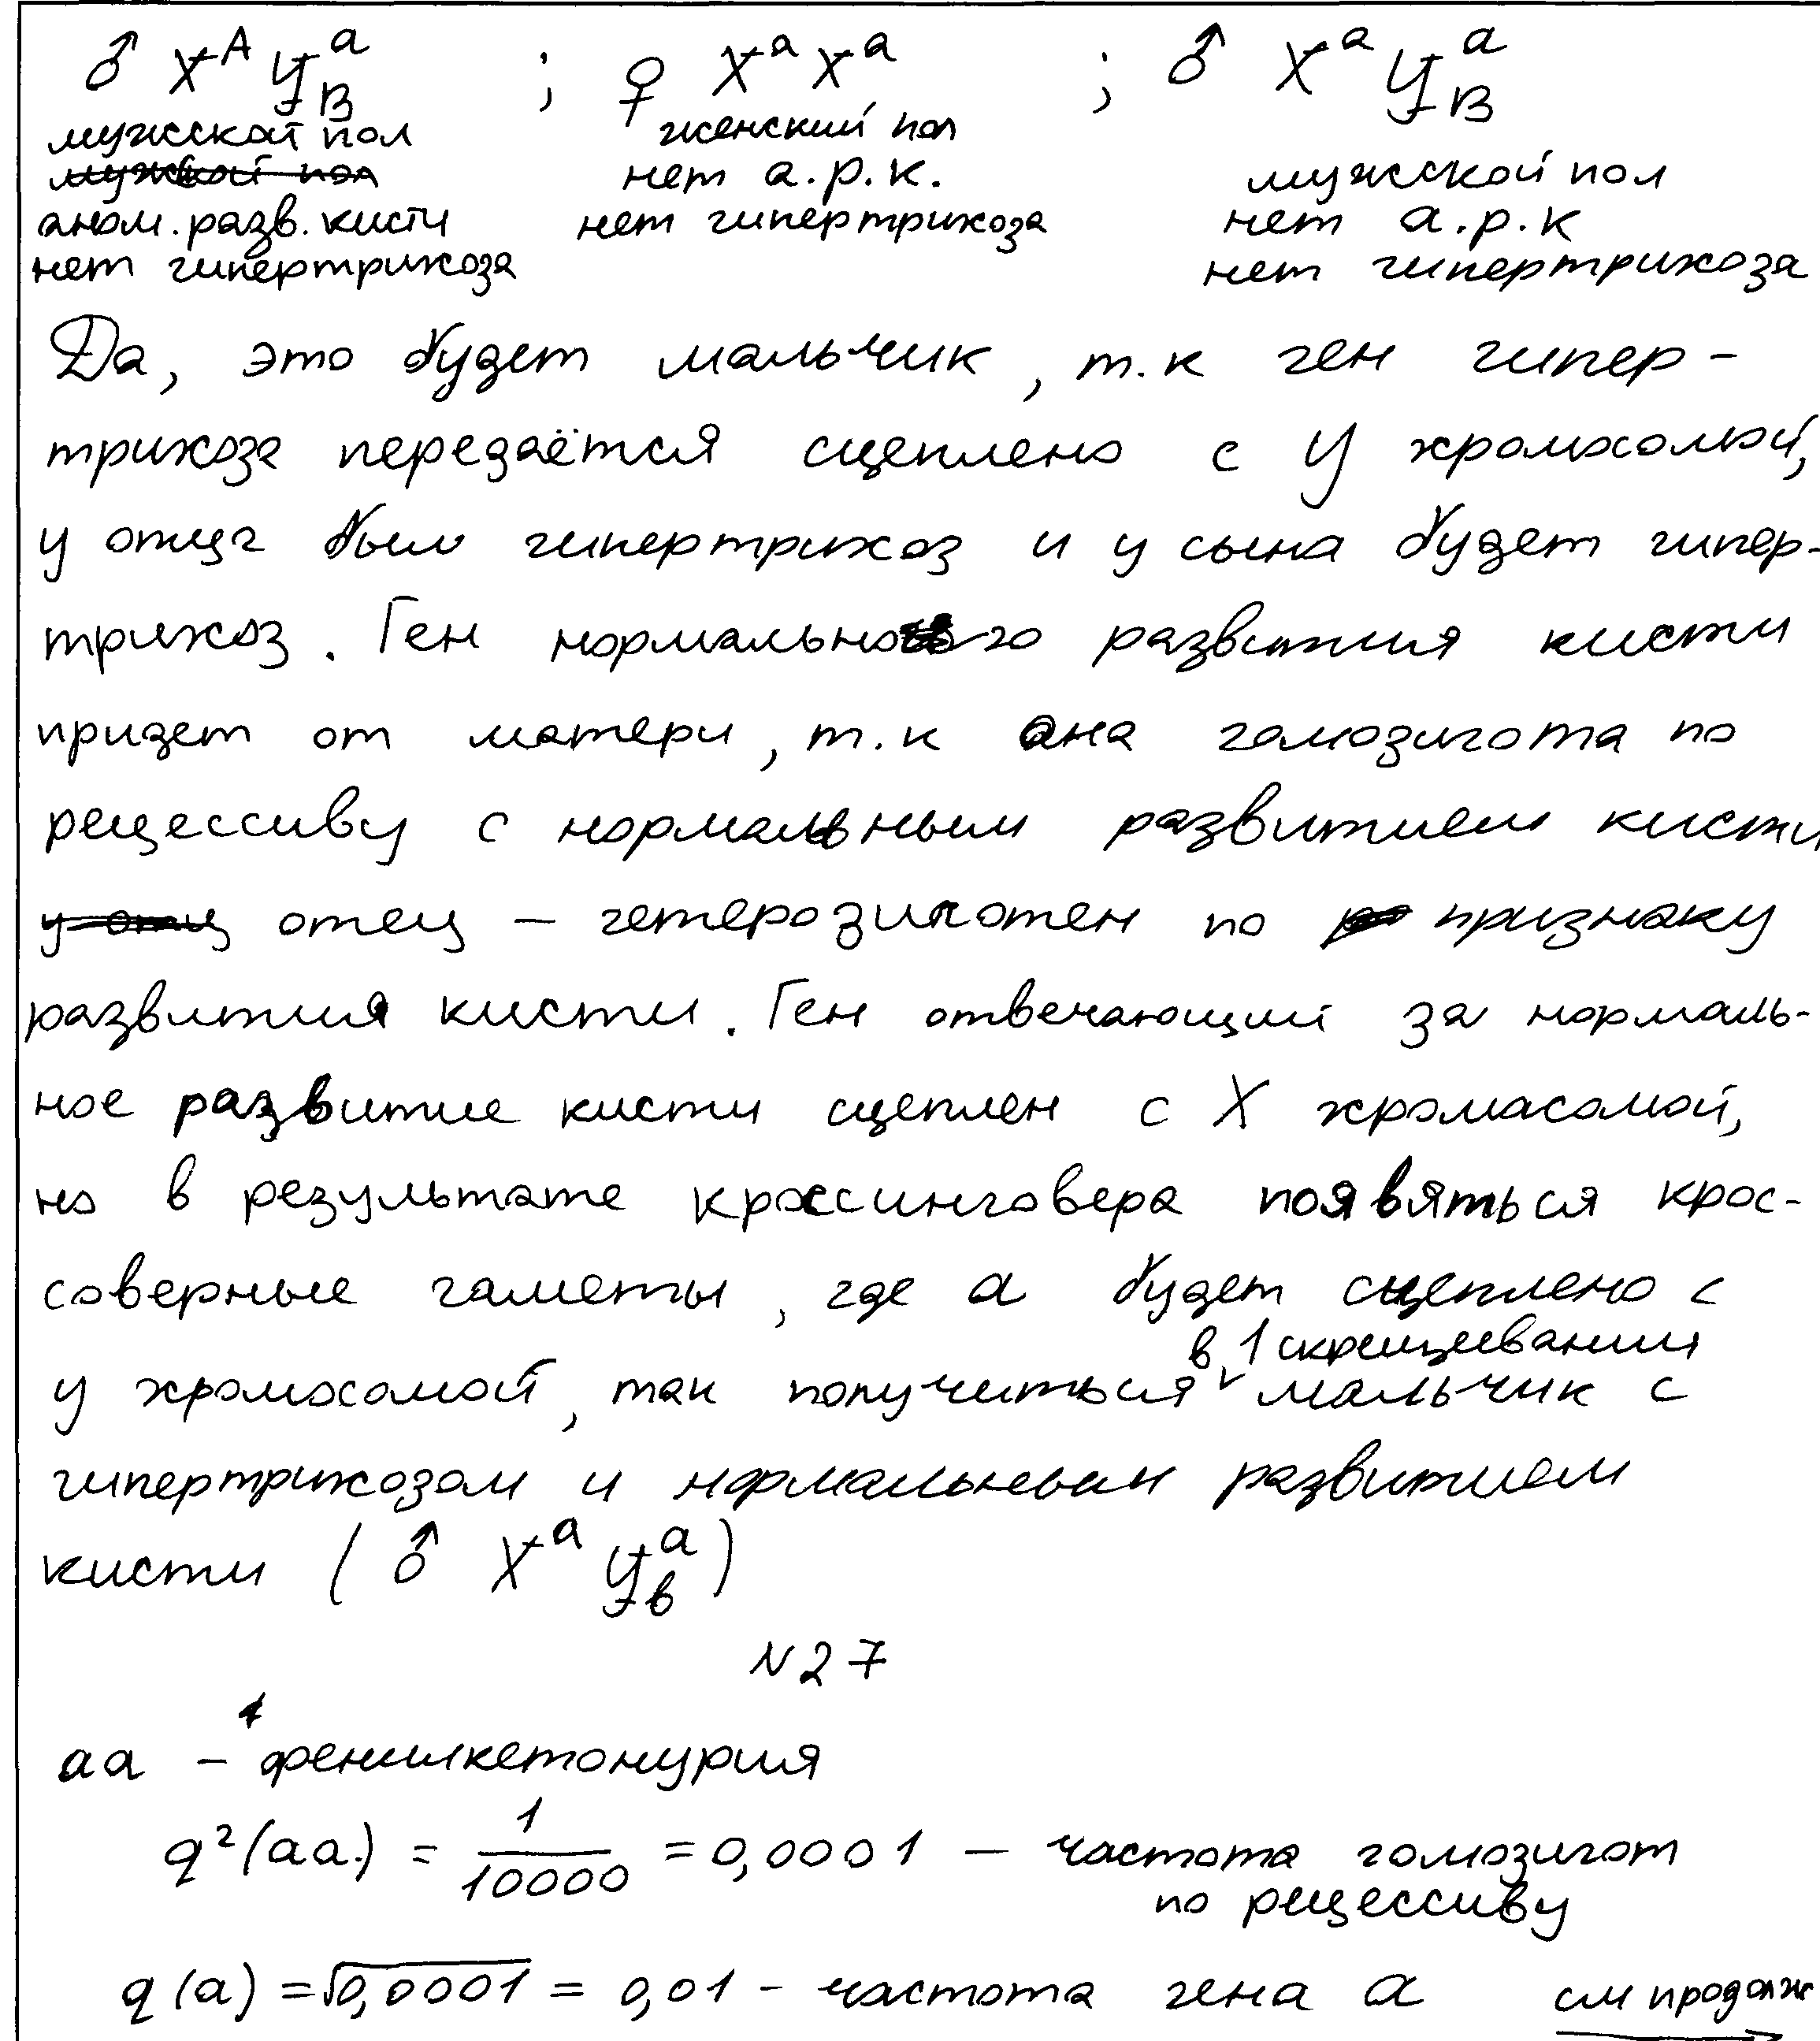 ♂ XᴬYᵃ_B ; ♀ XᵃXᵃ ; ♂ XᵃYᵃ_B
мужской пол женский пол
мужской пол нет а.р.к. мужской пол
аном. разв. кисти нет гипертрихоза нет а.р.к
нет гипертрихоза нет гипертрихоза
Да, это будет мальчик, т.к ген гипер-
трихоза передаётся сцеплено с У хромосомой,
у отца был гипертрихоз и у сына будет гипер-
трихоз. Ген нормального развития кисти
придет от матери, т.к она гомозигота по
рецессиву с нормальным развитием кисти
у отц отец – гетерозиготен по признаку
развития кисти. Ген отвечающий за нормаль-
ное развитие кисти сцеплен с Х хромасомой,
но в результате кроссинговера появяться крос-
соверные гаметы, где а будет сцеплено с
в 1 скрещивании
у хромосомой, так получиться мальчик с
гипертрихозом и нормальным развитием
кисти (♂ XᵃYᵃ_b)
N27
аа – фенилкетонурия
q²(аа.) = 1/10000 = 0,0001 – частота гомозигот
по рецессиву
q(а) = √0,0001 = 0,01 – частота гена а см продолж